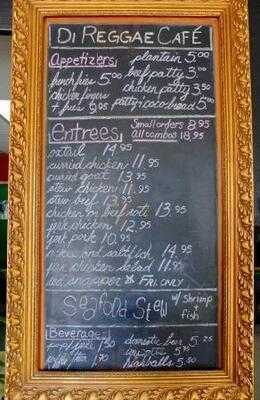 DI REGGAE CAFÉ
Appetizers
plantain 5.00
french fries 5.00
beef patty 3.00
chicken fingers
chicken patty 3.50
+ fries 9.95
patty + coco bread 5.00
Entrees
Small orders 8.95
All combos 18.95
oxtail 14.95
curried chicken 11.95
curried goat 13.95
stew chicken 11.95
stew beef 13.95
chicken or beef roti 13.95
jerk chicken 12.95
jerk pork 10.95
ackee and saltfish 14.95
jerk chicken salad 11.95
red snapper * FRI. ONLY
Seafood Stew w/ Shrimp
+ fish
Beverages
domestic beer 5.25
1.70
5.75
highballs 5.50